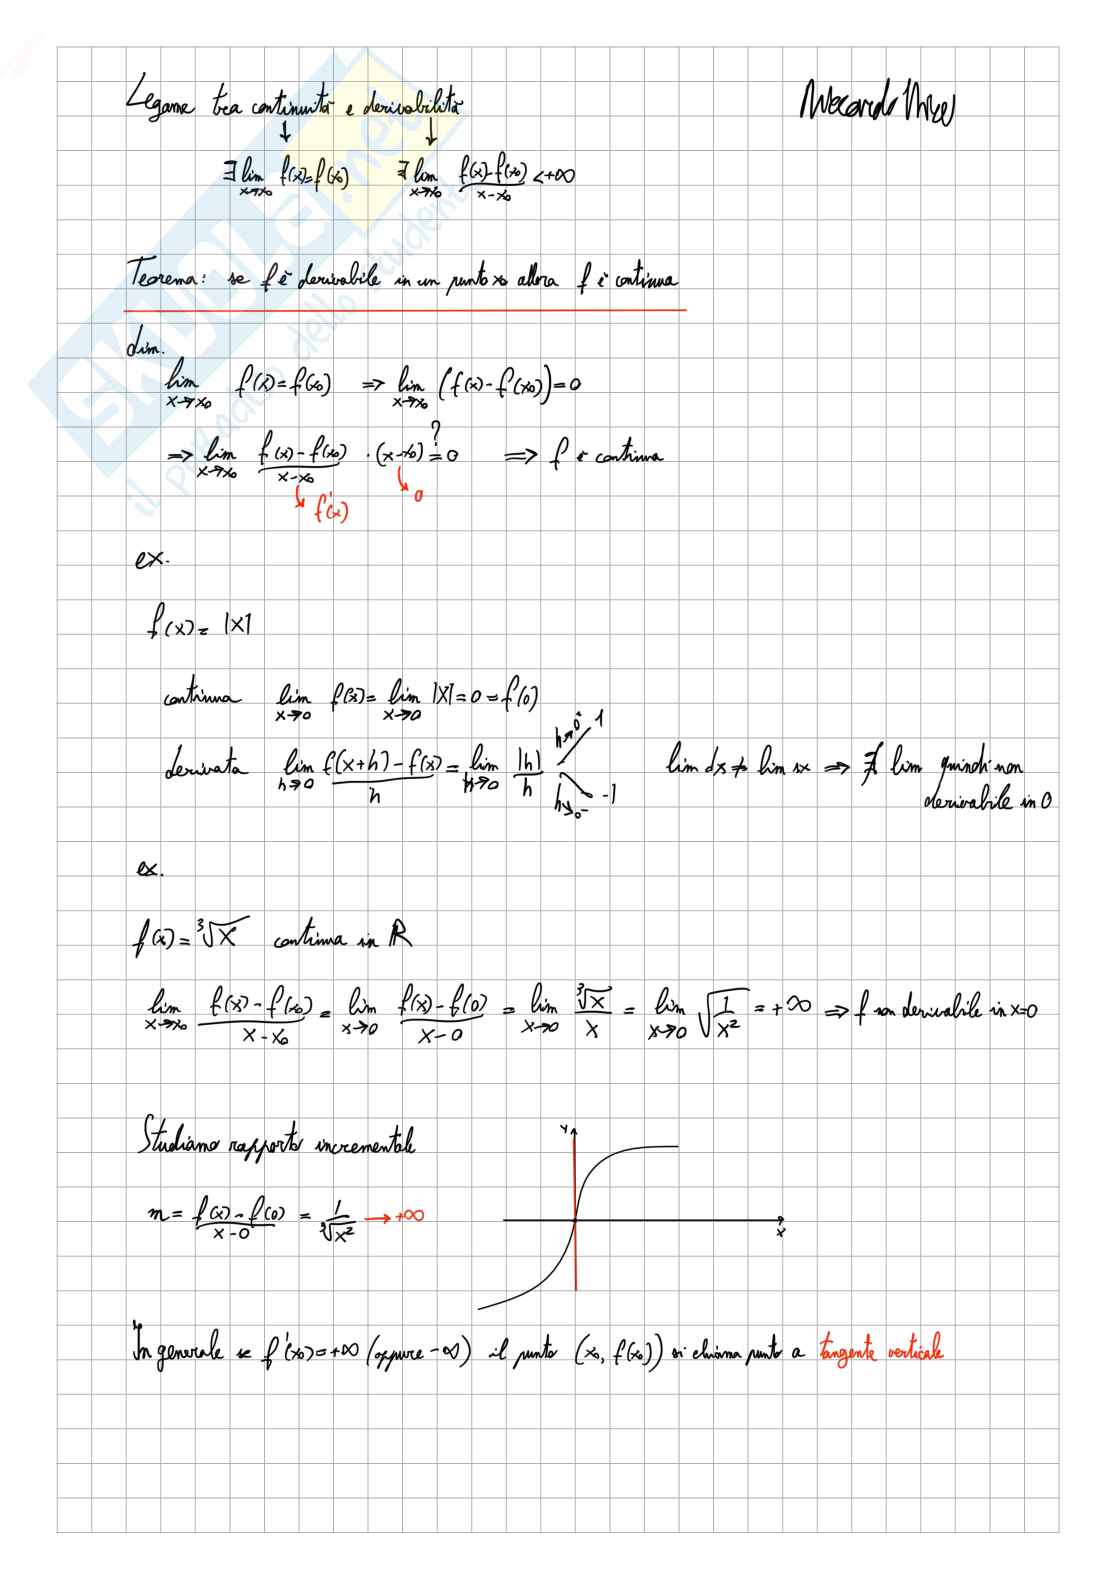 Legame tra continuità e derivabilità
↓ ↓
∃ lim x→x₀ f(x)=f(x₀) ∃ lim x→x₀ (f(x)-f(x₀))/(x-x₀) <+∞
Teorema: se f è derivabile in un punto x₀ allora f è continua
dim.
lim x→x₀ f(x)=f(x₀) ⇒ lim x→x₀ (f(x)-f(x₀))=0
⇒ lim x→x₀ (f(x)-f(x₀))/(x-x₀) · (x-x₀) =? 0 ⇒ f è continua
f'(x) 0
ex.
f(x)= |x|
continua lim x→0 f(x)= lim x→0 |x|=0=f(0)
derivata lim h→0 (f(x+h)-f(x))/h = lim h→0 |h|/h h→0⁺ 1 h→0⁻ -1 lim dx ≠ lim sx ⇒ ∄ lim quindi non
derivabile in 0
ex.
f(x)= ∛x continua in ℝ
lim x→x₀ (f(x)-f(x₀))/(x-x₀) = lim x→0 (f(x)-f(0))/(x-0) = lim x→0 ∛x/x = lim x→0 √(1/x²) = +∞ ⇒ f non derivabile in x=0
Studiamo rapporto incrementale
y
m= (f(x)-f(0))/(x-0) = 1/∛x² → +∞
x
In generale se f'(x₀)=+∞ (oppure -∞) il punto (x₀, f(x₀)) si chiama punto a tangente verticale
SKUOLA.net
il portale dello studente